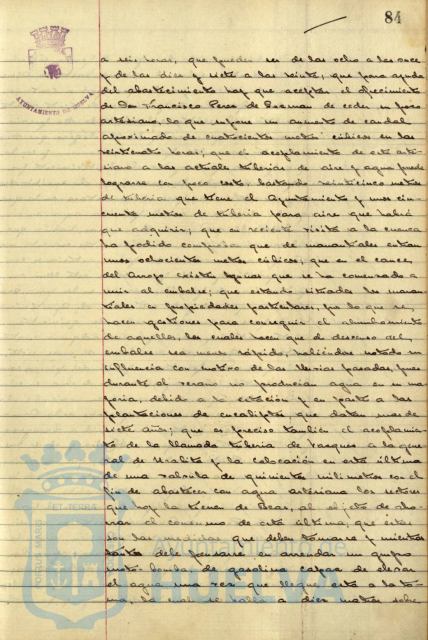 84
AYUNTAMIENTO DE HUELVA
a seis horas, que pueden ser de las ocho a las once
y de las diez y siete a las veinte, que para ayuda
del abastecimiento hay que aceptar el ofrecimiento
de Don Francisco Perez de Guzman de ceder su pozo
artesiano, lo que supone un aumento de caudal
aproximado de cuatrocientos metros cúbicos en las
veinticuatro horas; que el acoplamiento de este arte-
siano a las actuales tuberias de aire y agua puede
lograrse con poco costo, bastando veinticinco metros
de tuberia que tiene el Ayuntamiento y unos cin-
cuenta metros de tuberia para aire que habrá
que adquirir; que en reciente visita a la cuenca
ha podido comprobar que de manantiales entran
unos ochocientos metros cúbicos, que en el cauce
del Arroyo existen aguas que se ha comenzado a
unir al embalse; que estando situados los manan-
tiales en propiedades particulares, por lo que se
hacen gestiones para conseguir el alumbramiento
de aquellos, los cuales hacen que el descenso del
embalse sea menos rápido, habiéndose notado su
influencia con motivo de las lluvias pasadas, pues
durante el verano no producian agua en su ma-
yoria, debido a la estación y en parte a las
plantaciones de eucaliptos, que datan mas de
siete años; que es preciso también el acoplamien-
to de la llamada tuberia de Vazques a la gene-
ral de Uralita y la colocación en esta última
de una valvula de quinientos milimetros con el
fin de abastecer con agua artesiana los sectores
que hoy la tienen de Beas, al objeto de aho-
rrar el consumo de esta última; que éstas
son las medidas que deben tomarse y mientras
tanto debe pensarse en arrendar un grupo
moto-bomba de gasolina capaz de elevar
el agua una vez que llegue esta a la to-
ma, la cual se halla a diez metros sobre